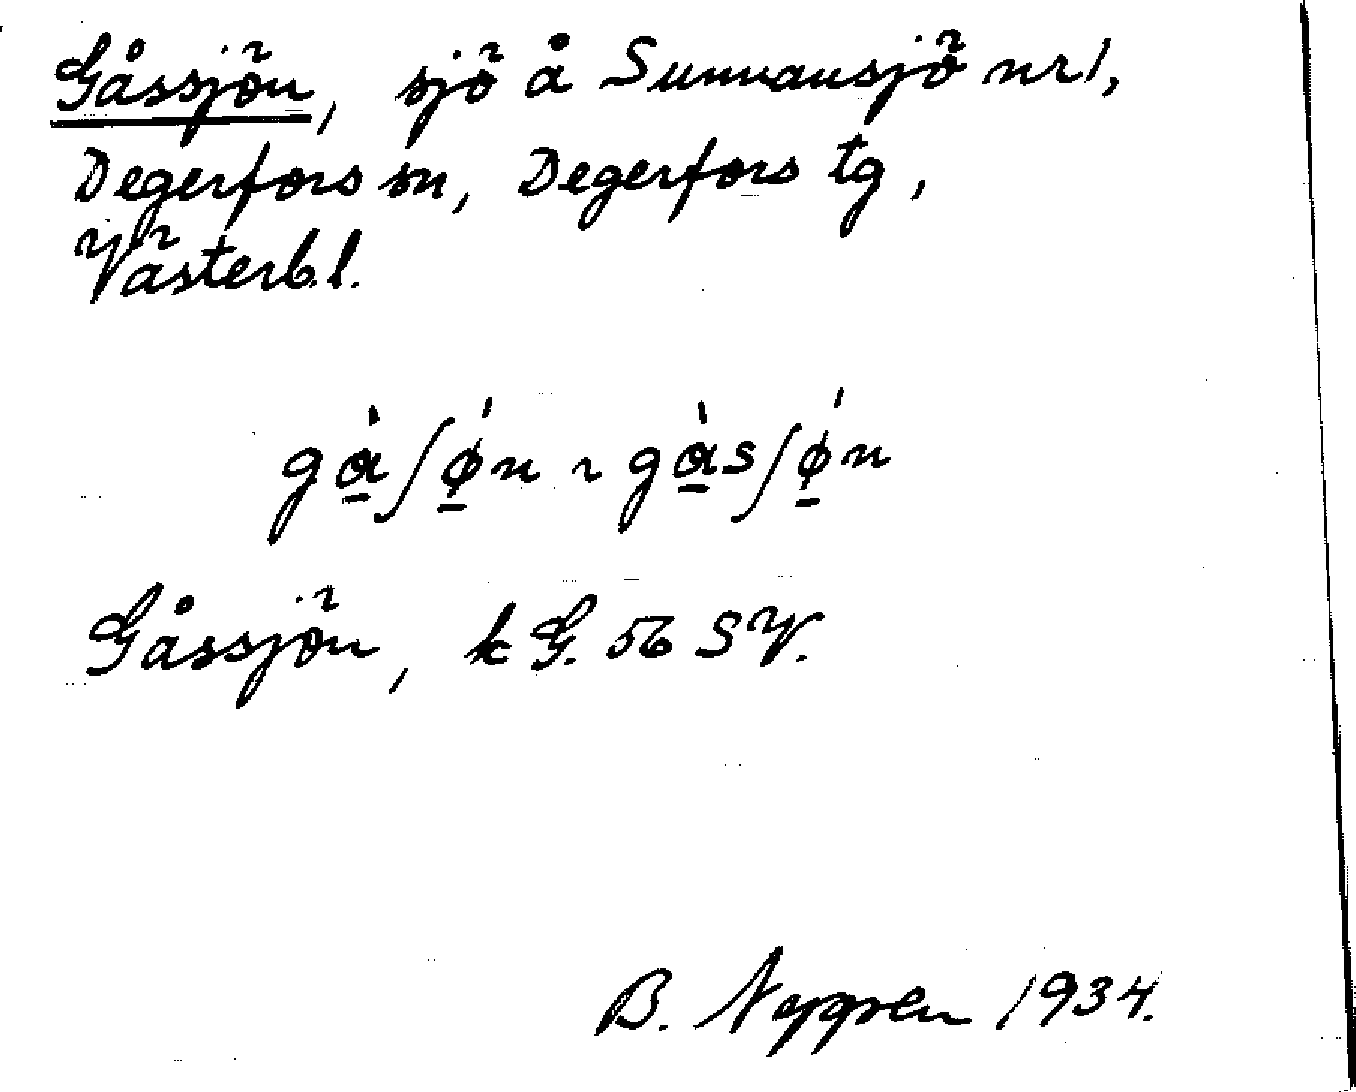 Gåssjön, sjö å Sunnansjö nr 1,
Degerfors sn, Degerfors tg,
Västerb.l.
gàʃǿn ~ gàsʃǿn
Gåssjön, kG. 56 SV.
B. 1934.